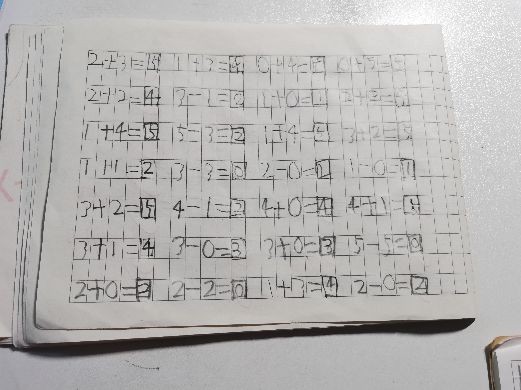 2+3=5 1+3=4 0+4=4 0+5=5
2+2=4 3-1=2 1+0=1 2+2=4
1+4=5 5-3=2 1+4=5 3+2=5
1+1=2 3-3=0 2-0=2 1-0=1
3+2=5 4-1=3 4+0=4 4+1=5
3+1=4 3-0=3 3+0=3 5-5=0
2+0=2 2-2=0 1+3=4 2-0=2